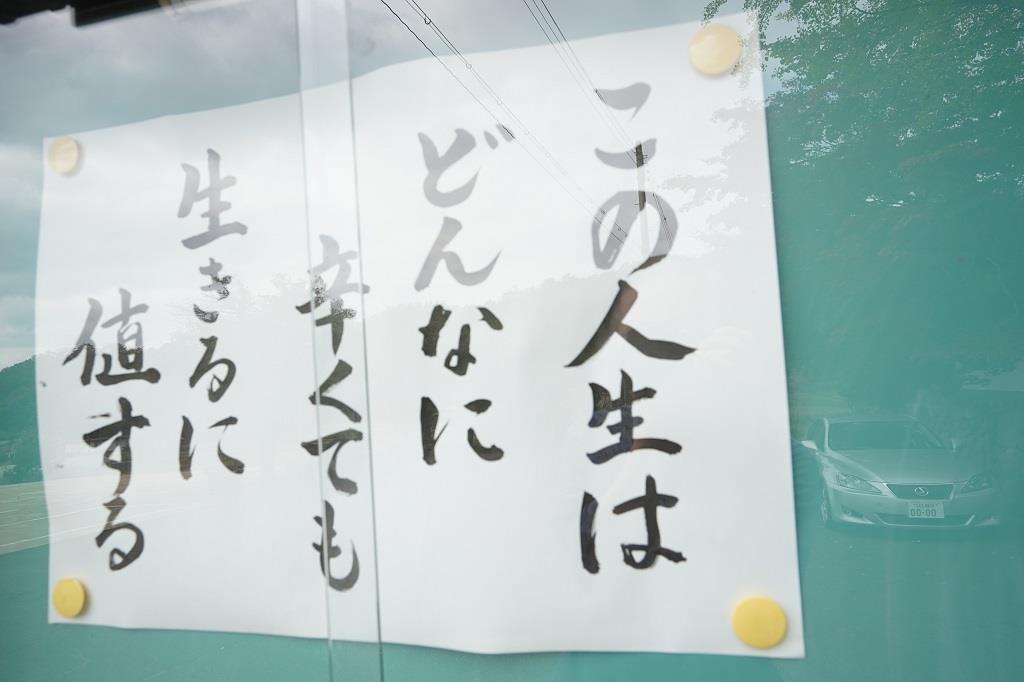 この人生は
どんなに
辛くても
生きるに
値する
00-00